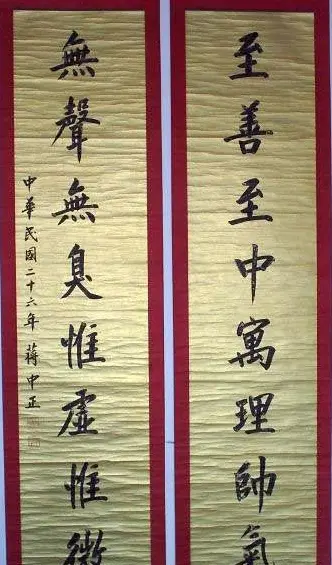 至善至中寓理帥氣
無聲無臭惟虛惟微
中華民國二十六年 蔣中正